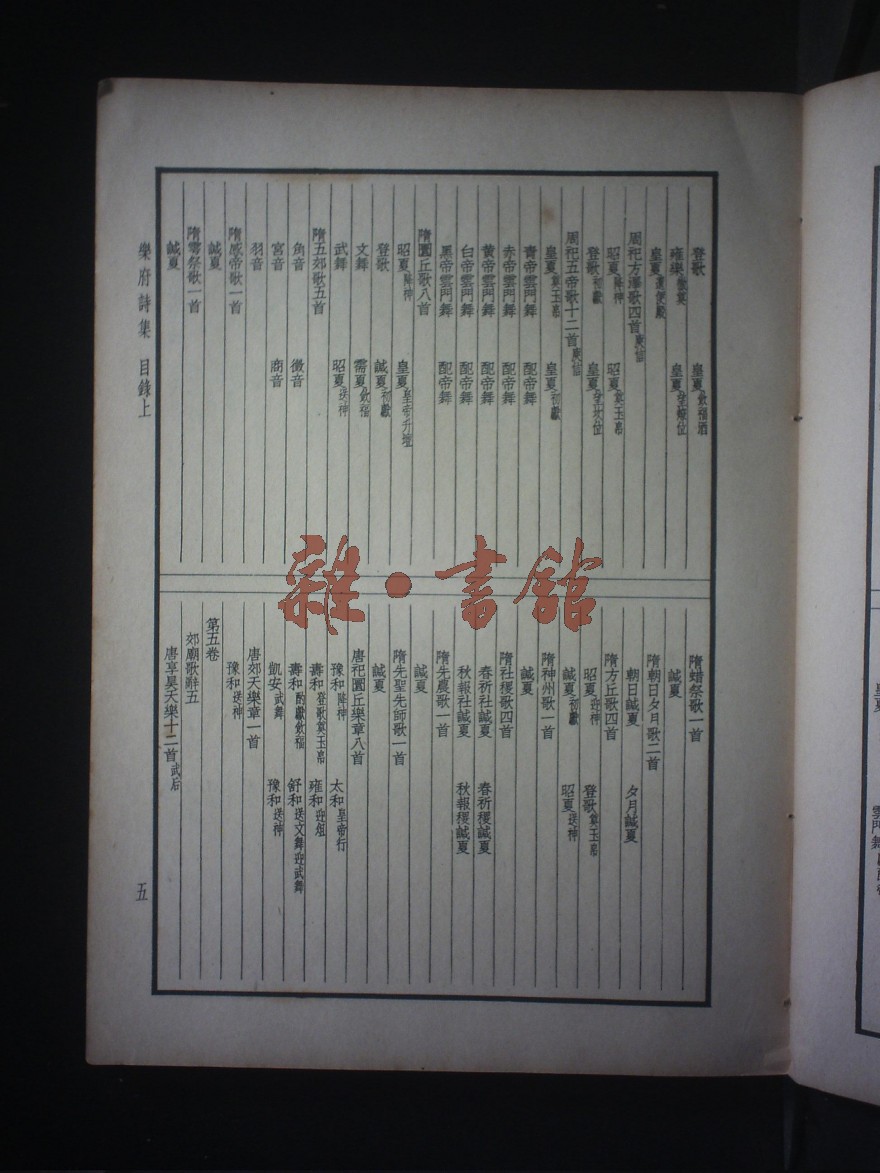 登歌　皇夏飲福酒
雍樂徹奠　皇夏望燎位
皇夏還便殿
周祀方澤歌四首庾信
昭夏降神　昭夏奠玉帛
登歌初獻　皇夏望坎位
周祀五帝歌十二首庾信
皇夏奠玉帛　皇夏初獻
青帝雲門舞　配帝舞
赤帝雲門舞　配帝舞
黄帝雲門舞　配帝舞
白帝雲門舞　配帝舞
黑帝雲門舞　配帝舞
隋圜丘歌八首
昭夏降神　皇夏皇帝升壇
登歌　諴夏初獻
文舞　需夏飲福
武舞　昭夏送神
隋五郊歌五首
角音　徵音
宮音　商音
羽音
隋感帝歌一首
諴夏
隋雩祭歌一首
諴夏
隋蜡祭歌一首
諴夏
隋朝日夕月歌二首
朝日諴夏　夕月諴夏
隋方丘歌四首
昭夏迎神　登歌奠玉帛
諴夏初獻　昭夏送神
隋神州歌一首
諴夏
隋社稷歌四首
春祈社諴夏　春祈稷諴夏
秋報社諴夏　秋報稷諴夏
隋先農歌一首
諴夏
隋先聖先師歌一首
諴夏
唐祀圜丘樂章八首
豫和降神　太和皇帝行
壽和登歌奠玉帛　雍和迎俎
壽和酌獻飲福　舒和送文舞迎武舞
凱安武舞　豫和送神
唐郊天樂章一首
豫和送神
第五卷
郊廟歌辭五
唐享昊天樂十二首武后
樂府詩集　目錄上
五
雜·書館